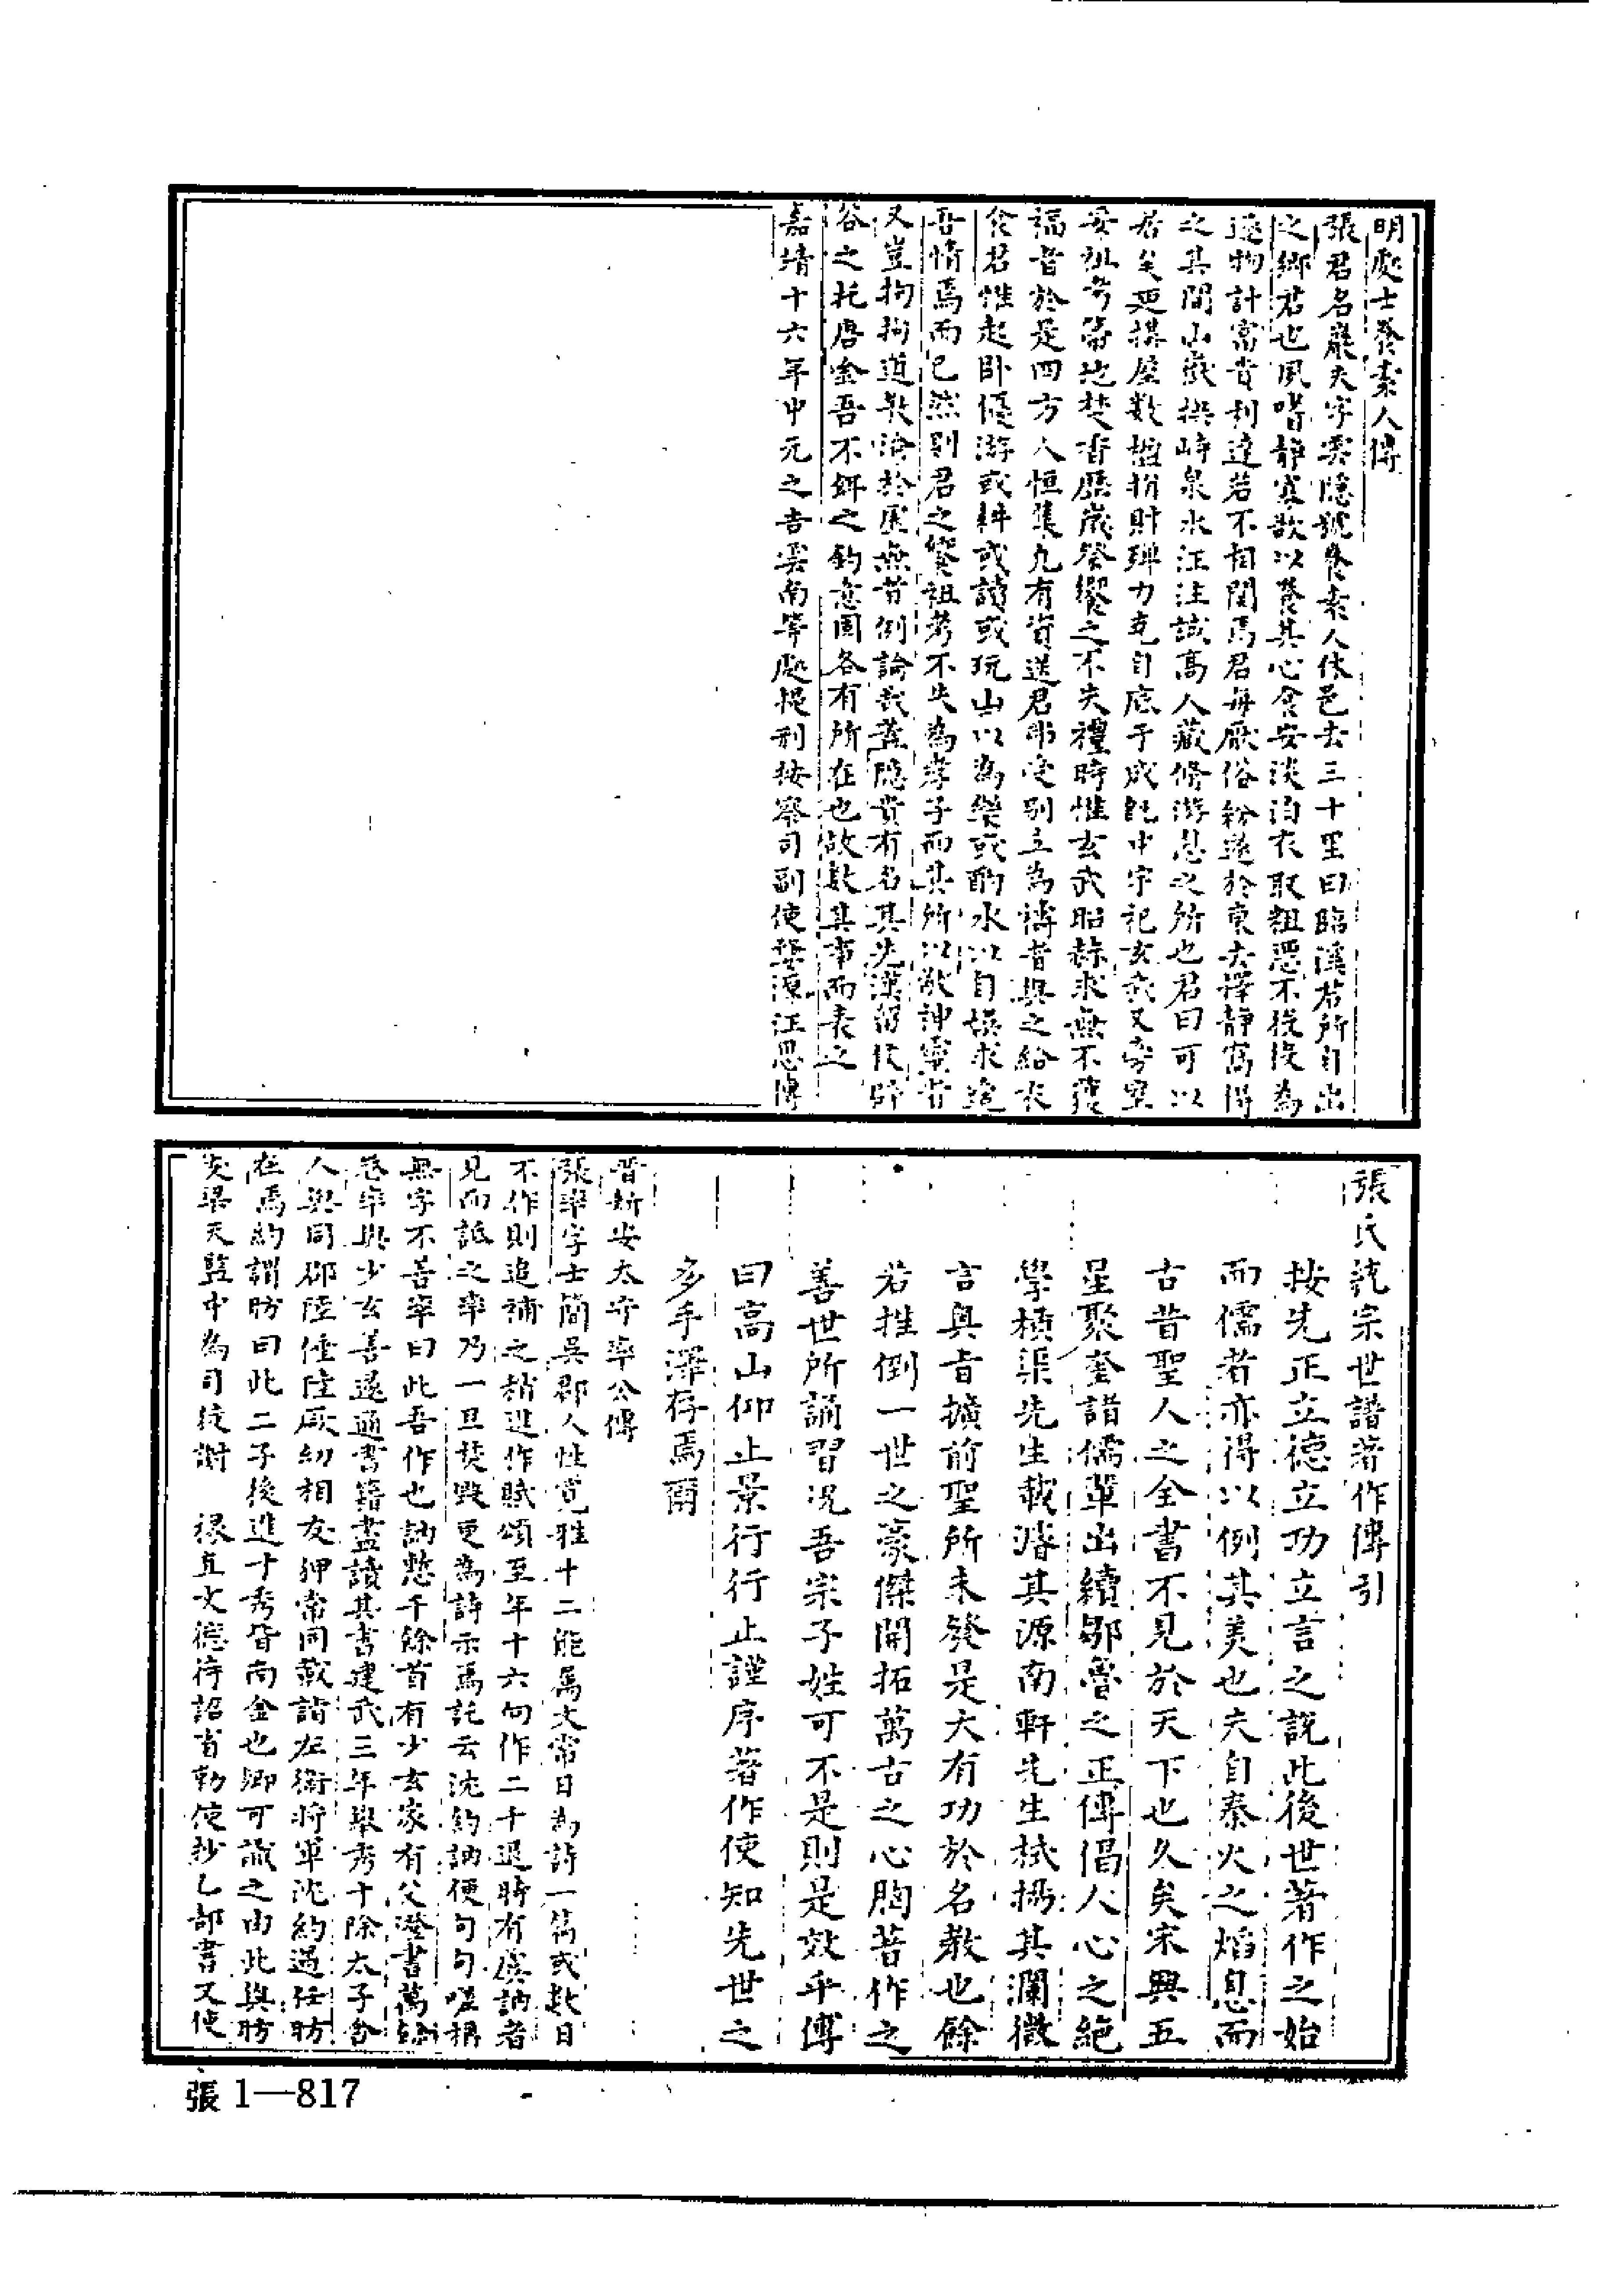 明處士養素人傳
張君名嚴夫字雲隱號養素人休邑去三十里曰臨溪君所自出
之鄉君也夙嗜靜寡欲以養其心食安淡泊衣取粗惡不役役為
逐物計富貴利達若不相関焉君每厭俗紛遂於東去擇靜窩得
之其間山巖拱峙泉水汪注誠高人藏脩游息之所也君曰可以
居矣迺搆屋数楹捐財殫力克自底于成既中宇祀玄武又旁室
安祖考篇地焚香歷歲祭饗之不失禮時惟玄武昭赫求無不獲
福者於是四方人恒集凡有資送君弗受別立為禱者與之給衣
食君惟起卧優游或耕或讀或玩山以為樂或酌水以自娛求適
吾情焉而已然則君之饗祖考不失為孝子而其所以敬神靈者
又豈拘拘道教淪於虛無者例論哉蓋隐貴有名其先漢留侯辟
谷之托唐金吾不餌之釣意固各有所在也故敘其事而表之
嘉靖十六年中元之吉雲南等處提刑按察司副使婺源汪思傳
張氏統宗世譜著作傳引
按先正立德立功立言之説此後世著作之始
而儒者亦得以例其美也夫自秦火之熖息而
古昔聖人之全書不見於天下也久矣宋興五
星聚奎諸儒輩出續鄒魯之正傳倡人心之絶
學橫渠先生載濬其源南軒先生栻揚其瀾微
言奥旨擴前聖所未發是大有功於名教也餘
若推倒一世之豪傑開拓萬古之心胸著作之
善世所誦習况吾宗子姓可不是則是效乎傳
曰高山仰止景行行止謹序著作使知先世之
多手澤存焉爾
晋新安太守率公傳
張率字士簡吳郡人性寛雅十二能属文常日為詩一篇或数日
不作則追補之稍進作賦頌至年十六向作二千退時有虞訥者
見而詆之率乃一旦焚毀更為詩示焉託云沈約訥便句句嗟稱
無字不善率曰此吾作也訥慙千餘首有少玄家有父澄書萬餘
卷率與少玄善遂通書籍盡讀其書建武三年舉秀才除太子舍
人與同郡陸倕陸厥幼相友狎常同載詣左衛將軍沈約遇任昉
在焉約謂昉曰此二子後進才秀皆南金也卿可識之由此與昉
友梁天監中為司徒謝 掾直文德待詔省勅使抄乙部書又使
張 1—817